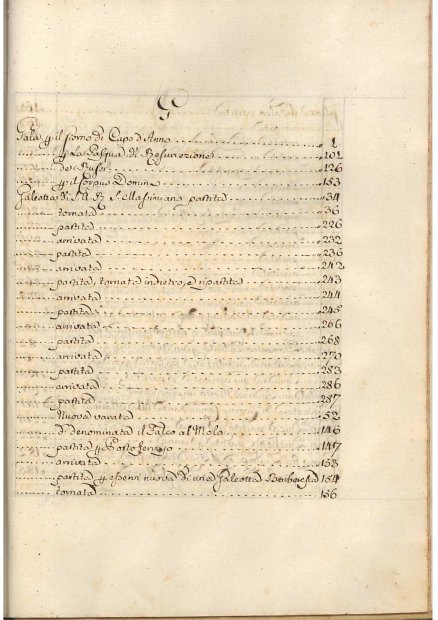 G
Gala p il Giorno di Capo d'Anno 1
p la Pasqua di Resurezione 101
126
p il Corpus Domini 153
Galeotta di S. A. R. S. Massimiano partita 34
tornata 36
partita 226
arrivata 232
partita 236
arrivata 242
partita, tornata indietro, e ripartita 243
arrivata 244
partita 245
arrivata 266
partita 268
arrivata 270
partita 283
arrivata 286
partita 287
Nuova varata 52
denominata il Falco al Molo 146
partita p Porto Ferraio 147
arrivata 153
partita p esservi nuova di una Galeotta Barbaresca 154
tornata 156